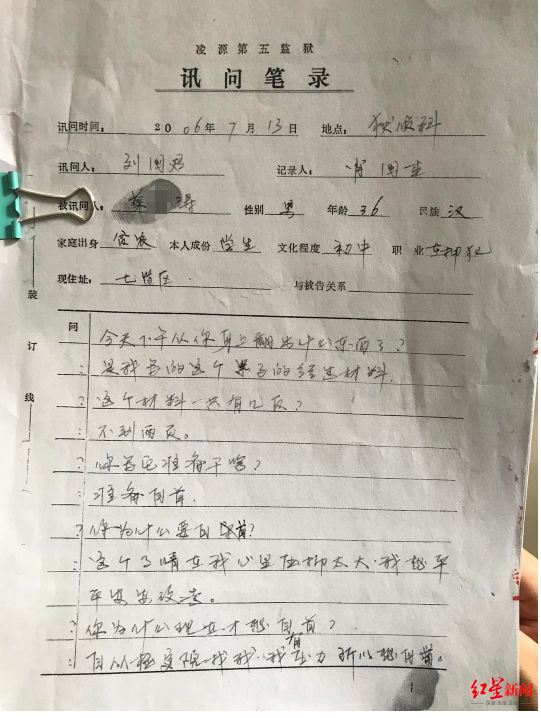 凌源第五监狱
讯问笔录
讯问时间: 2006年7月13日 地点: 狱侦科
讯问人: 刘国君 记录人: 国
被讯问人: 涛 性别 男 年龄 36 民族 汉
家庭出身 贫农 本人成份 学生 文化程度 初中 职业 在押犯
现住址: 七监区 与被告关系
问
今天下午从你身上翻出什么东西了?
: 是我写的这个案子的经过材料.
? 这个材料一共有几页?
: 不到两页。
? 你写它准备干啥?
: 准备自首.
? 你为什么要自首?
: 这个事情在我心里压抑太大.我想平
平安安改造。
? 你为什么现在才想自首?
: 自从 我.我有压力所以想自首。
装
订
线
1
红星新闻